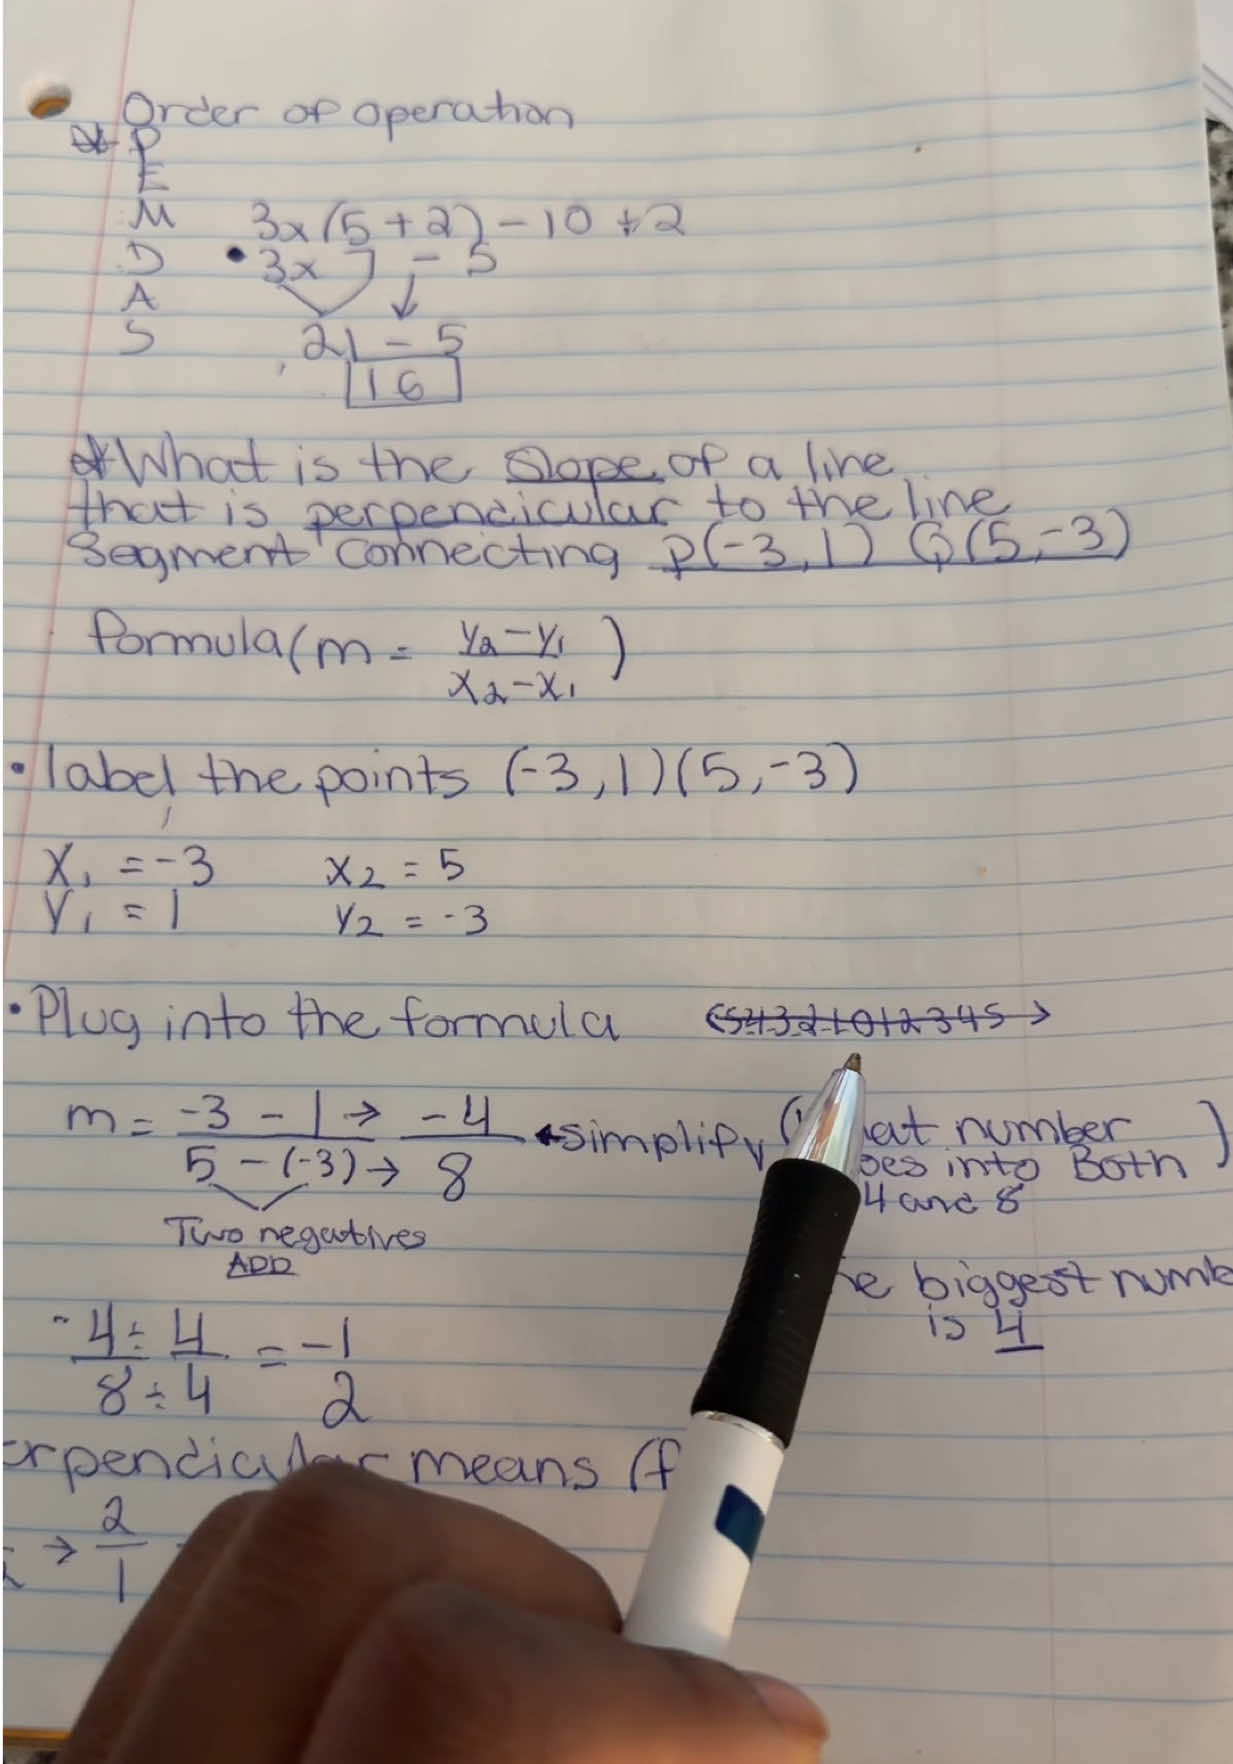 Order of operation
P
E
M 3x(5+2)-10÷2
D • 3x 7 - 5
A
S 21 - 5
16
What is the Slope of a line
that is perpendicular to the line
Segment connecting P(-3,1) Q(5,-3)
formula (m = y2-y1 / x2-x1)
• label the points (-3,1)(5,-3)
X1 = -3 X2 = 5
Y1 = 1 Y2 = -3
• Plug into the formula 5 4 3 2 1 0 1 2 3 4 5
m = -3 - 1 → -4
5 - (-3) → 8
simplify ( number )
into Both
4 and 8
Two negatives
ADD
biggest
is 4
-4 ÷ 4 = -1
8 ÷ 4 2
means
→ 2
1